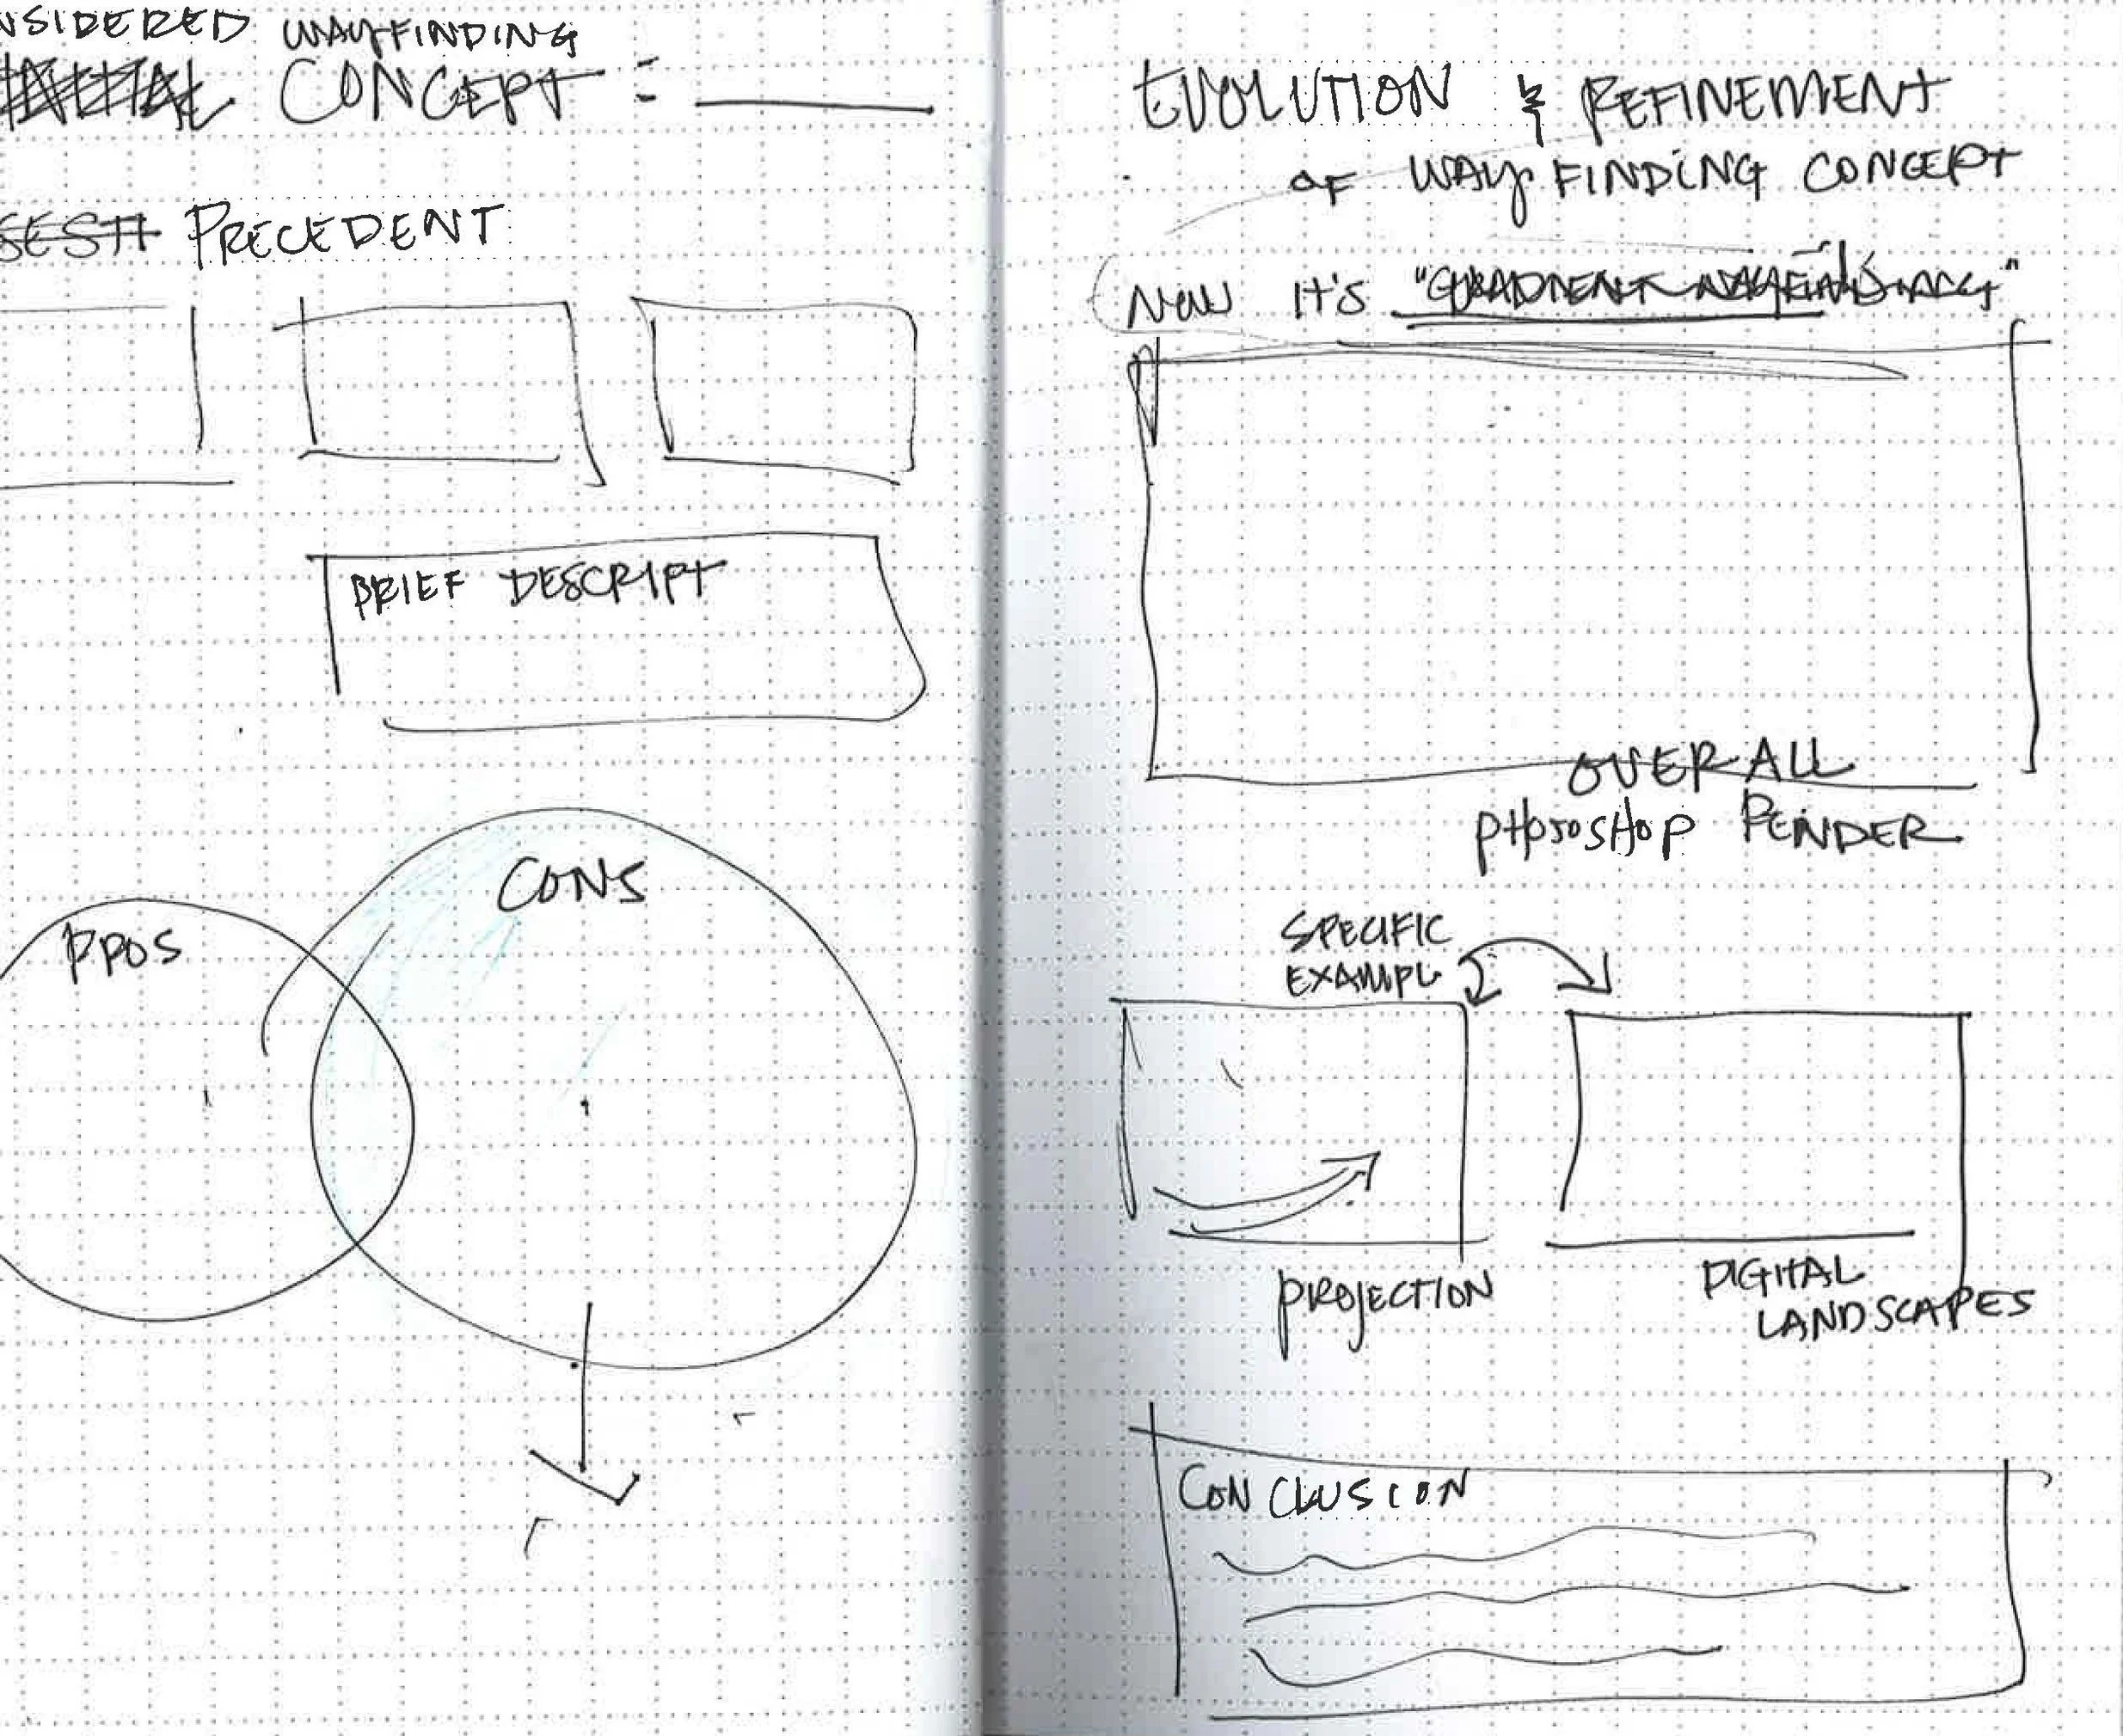 NSIDERED WAYFINDING
CONCEPT : ___
PRECEDENT
BRIEF DESCRIPT
PROS
CONS
EVOLUTION & REFINEMENT
OF WAY FINDING CONCEPT
NOW IT'S "GRADIENT WAYFINDING"
OVERALL
PHOTOSHOP RENDER
SPECIFIC
EXAMPL
PROJECTION
DIGITAL
LANDSCAPES
CONCLUSION